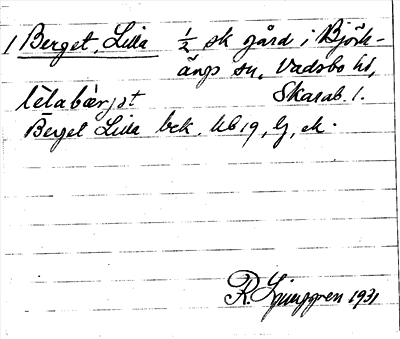 1 Berget, Lilla ½ sk gård i Björk-
ängs sn, Vadsbo hd,
lilabärjet Skarab. l.
Berget Lilla bck. Ub 19, G, ek.
R. Ljunggren 1931